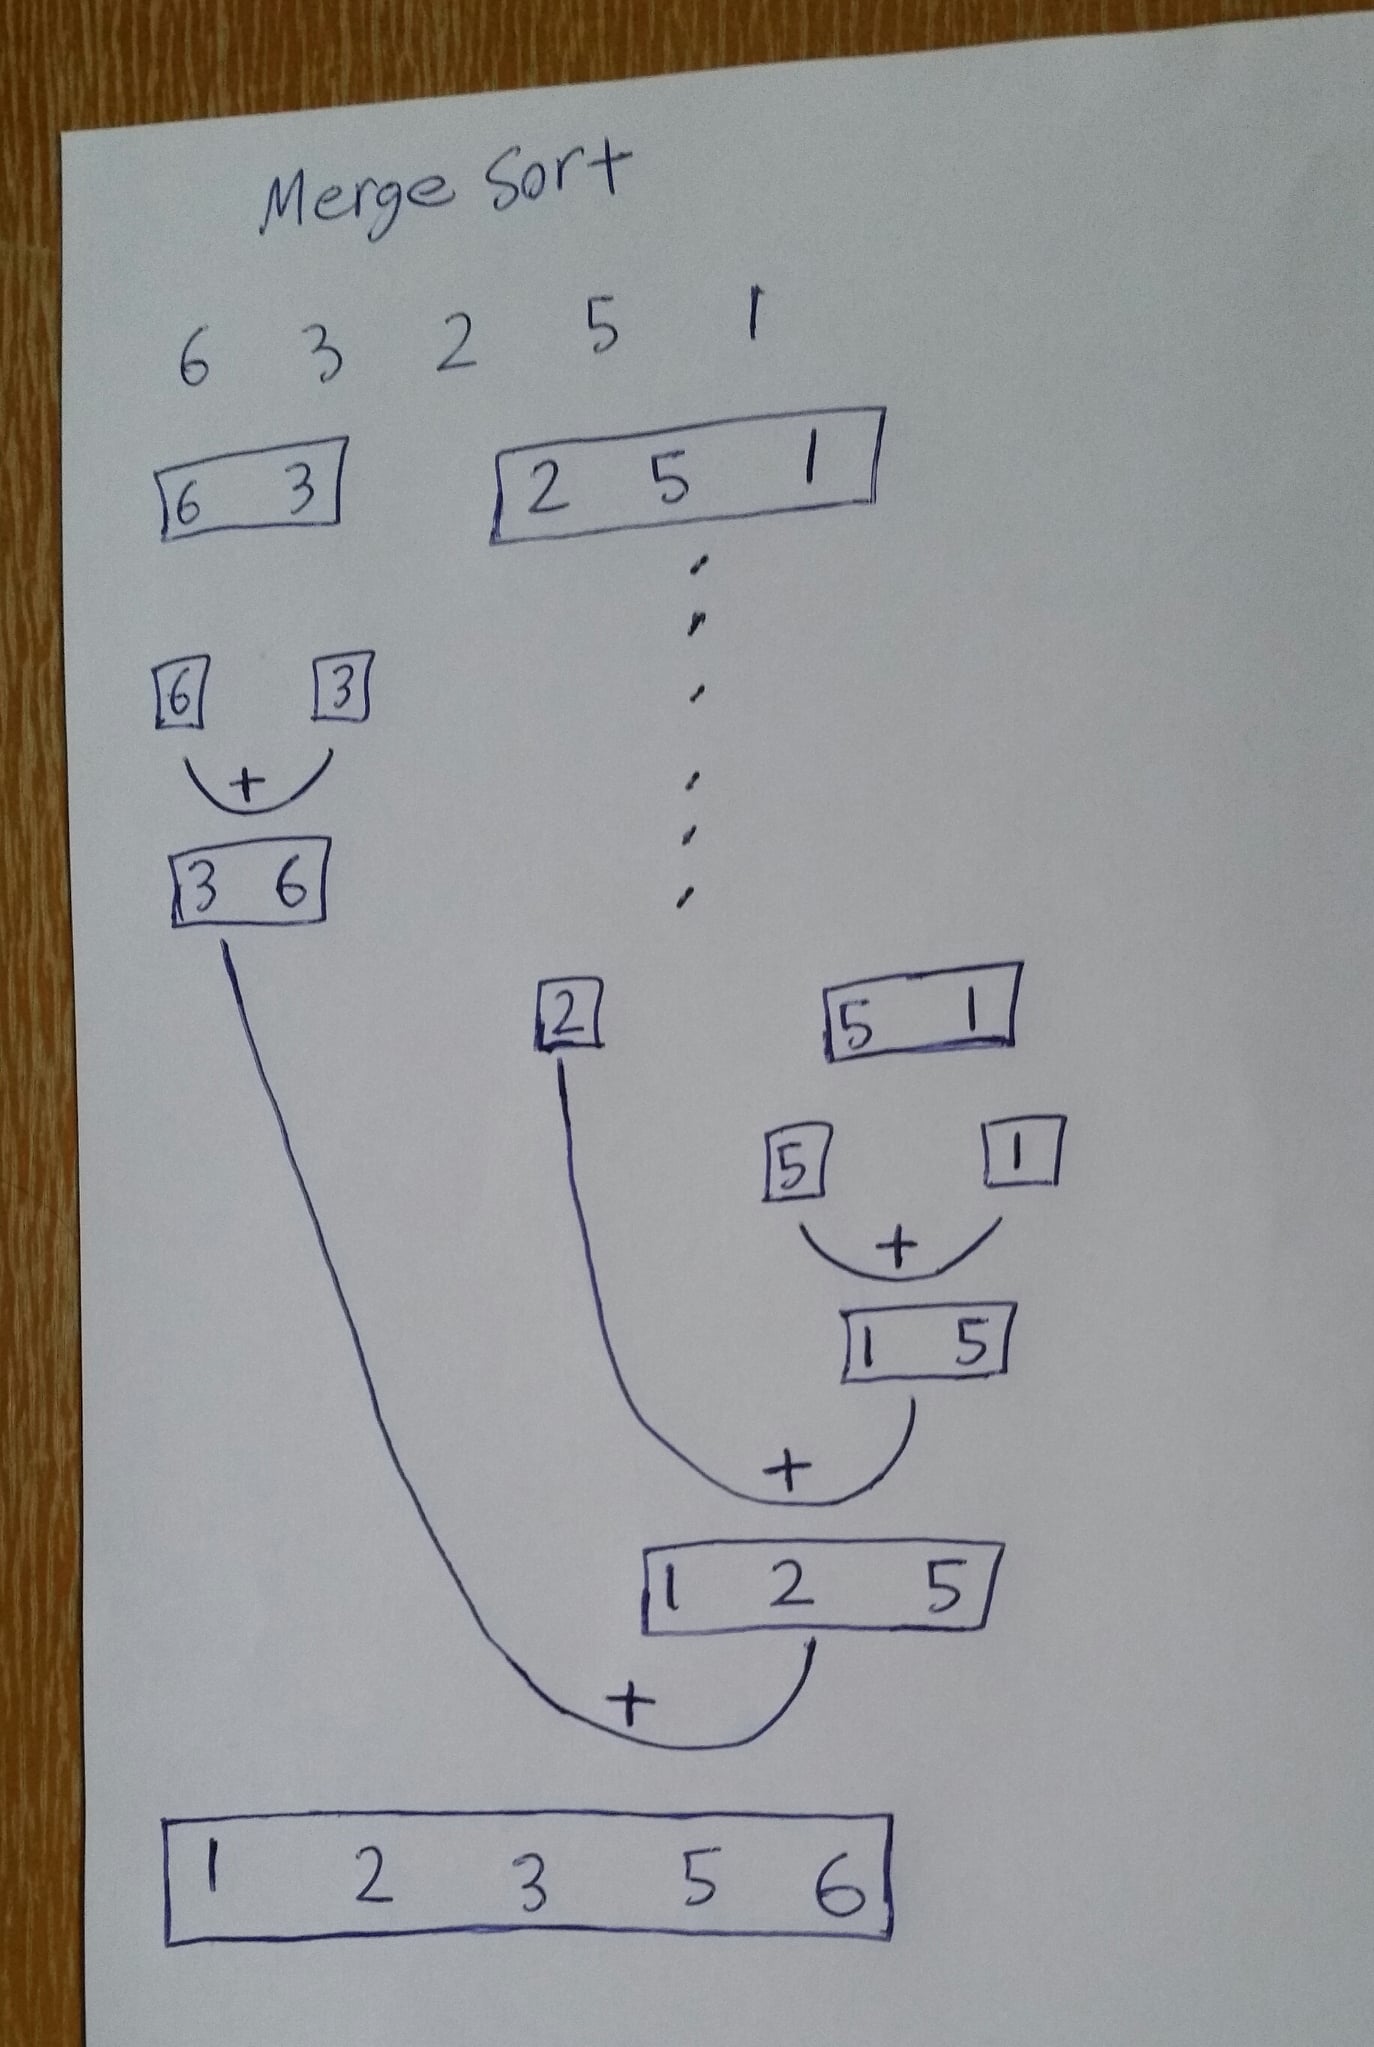 Merge Sort
6 3 2 5 1
6 3 2 5 1
6 3
+
3 6
2 5 1
5 1
+
1 5
+
1 2 5
+
1 2 3 5 6